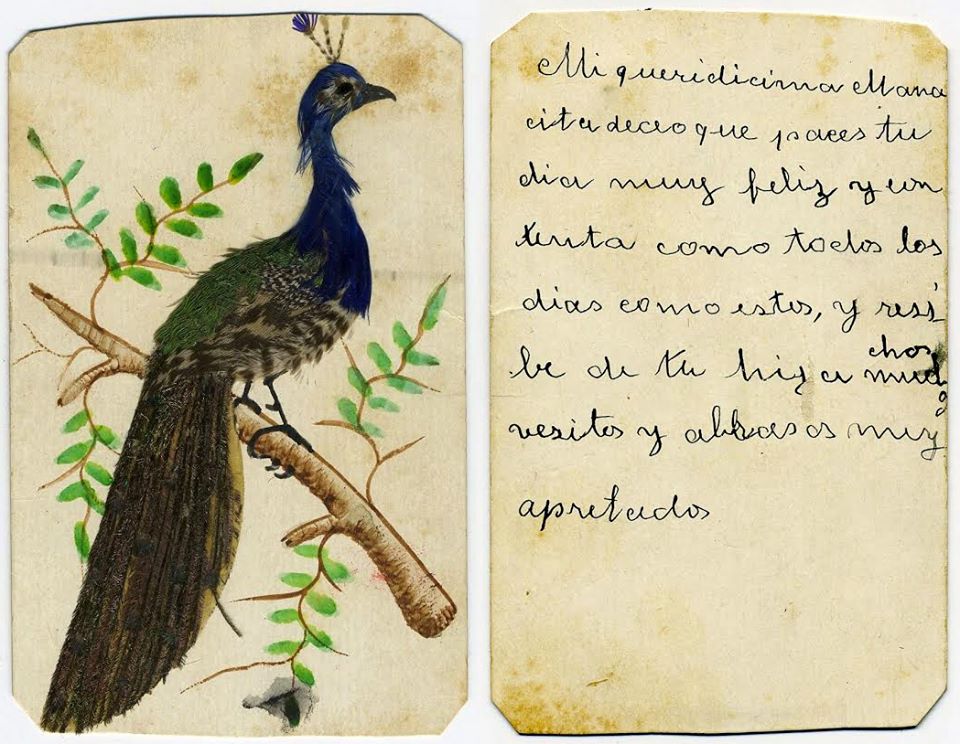 Mi queridicima Mama
cita deceo que paces tu
dia muy feliz y con
tenta como todos los
dias como estos, y resi-
be de tu hija muchos
vesitos y abrasos muy
apretados